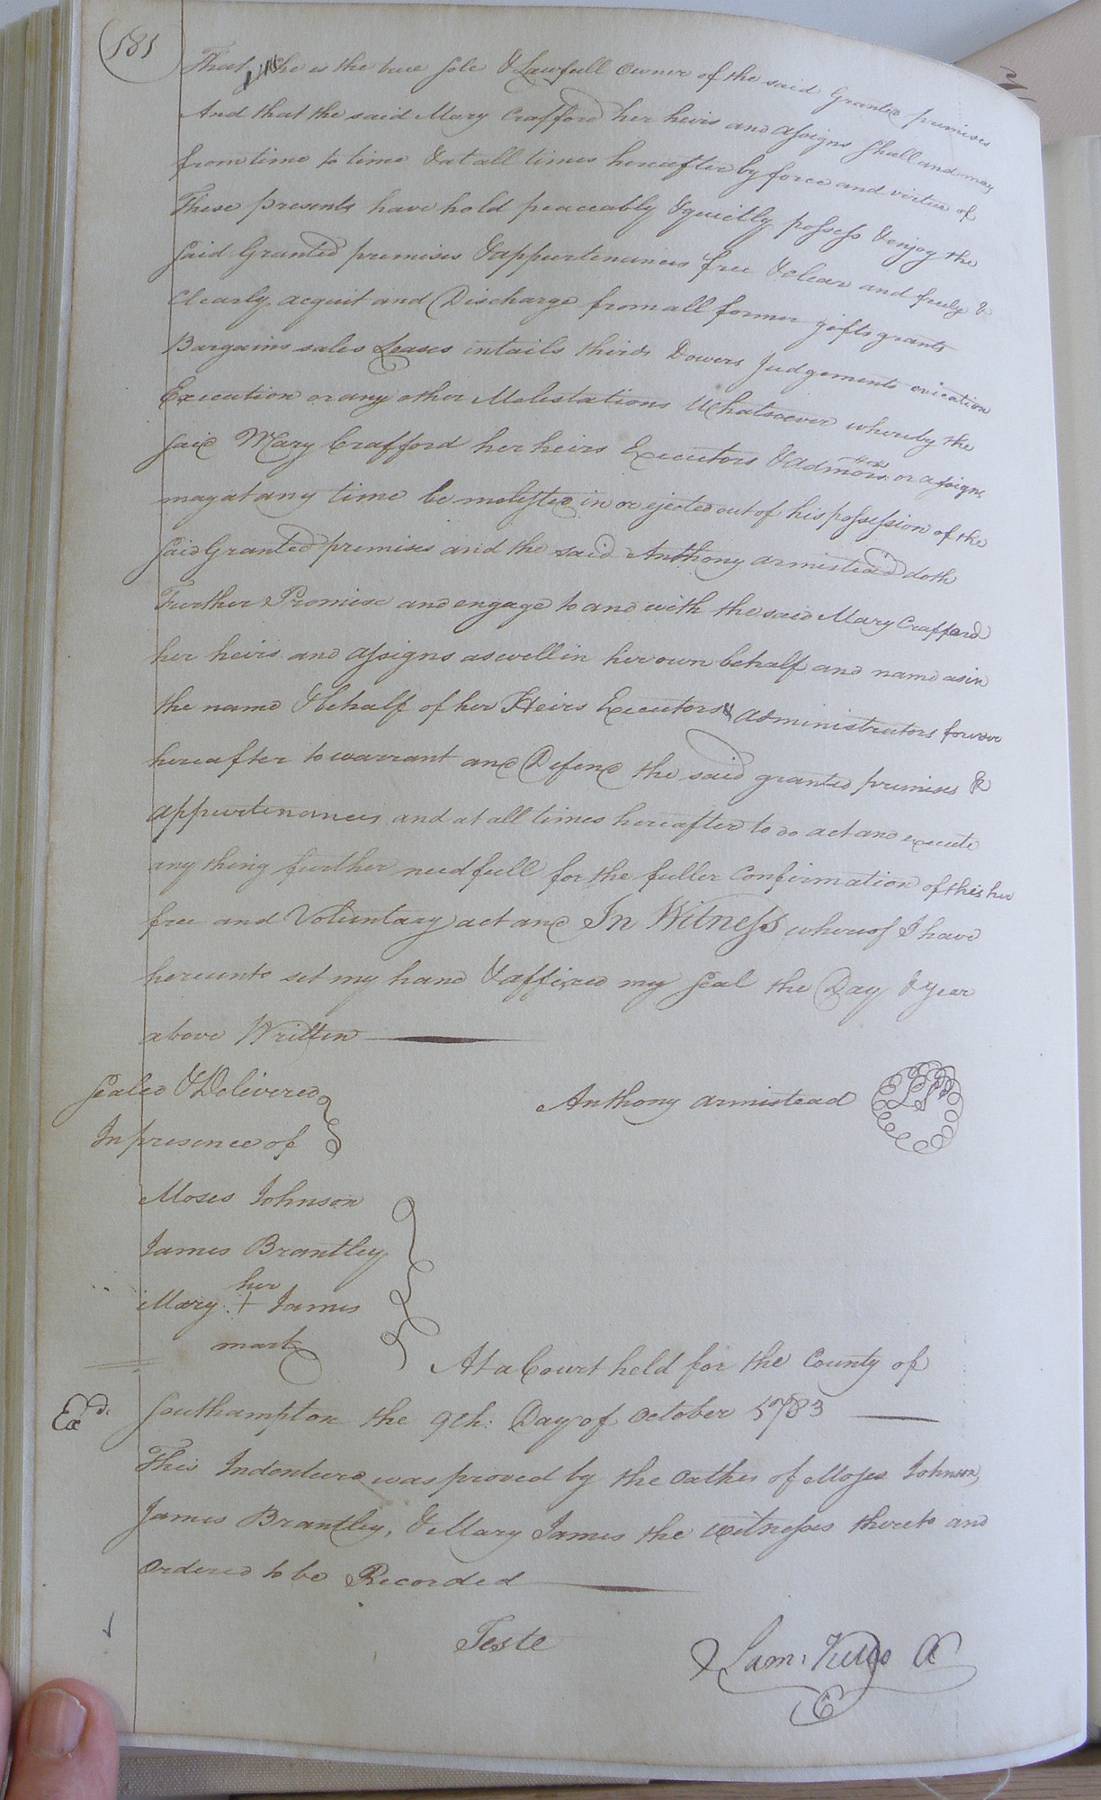 181
That she is the true sole & Lawfull Owner of the said Granted premises
And that the said Mary Crafford her heirs and assigns Shall and may
from time to time & at all times hereafter by force and virtue of
These presents have hold peaceably & quietly possess & enjoy the
Said Granted premises & appurtenances free & clear and freely &
Clearly acquit and Discharge from all former gifts grants
Bargains sales Leases intails thirds Dowers Judgements eviction
Execution or any other Molestations Whatsoever whereby the
said Mary Crafford her heirs Executors & Admors or assigns
may at any time be molested in or ejected out of his possession of the
Said Granted premises and the said Anthony armistead doth
Further Promise and engage to and with the said Mary Crafford
her heirs and assigns as well in her own behalf and name as in
the name & behalf of her Heirs Executors & administrators forever
hereafter to warrant and Defend the said granted premises &
appurtenances and at all times hereafter to do act and execute
any thing further needfull for the fuller Confirmation of this her
free and Voluntary act and In Witness whereof I have
hereunto set my hand & affixed my Seal the Day & Year
above Written
Sealed & Delivered
In presence of
Anthony armistead
Moses Johnson
James Brantley
her
Mary + James
mark
At a Court held for the County of
Exd.
Southampton the 9th: Day of October 1783
This Indenture was proved by the Oathes of Moses Johnson,
James Brantley, & Mary James the witnesses thereto and
Ordered to be Recorded
Teste
Sam: Kello